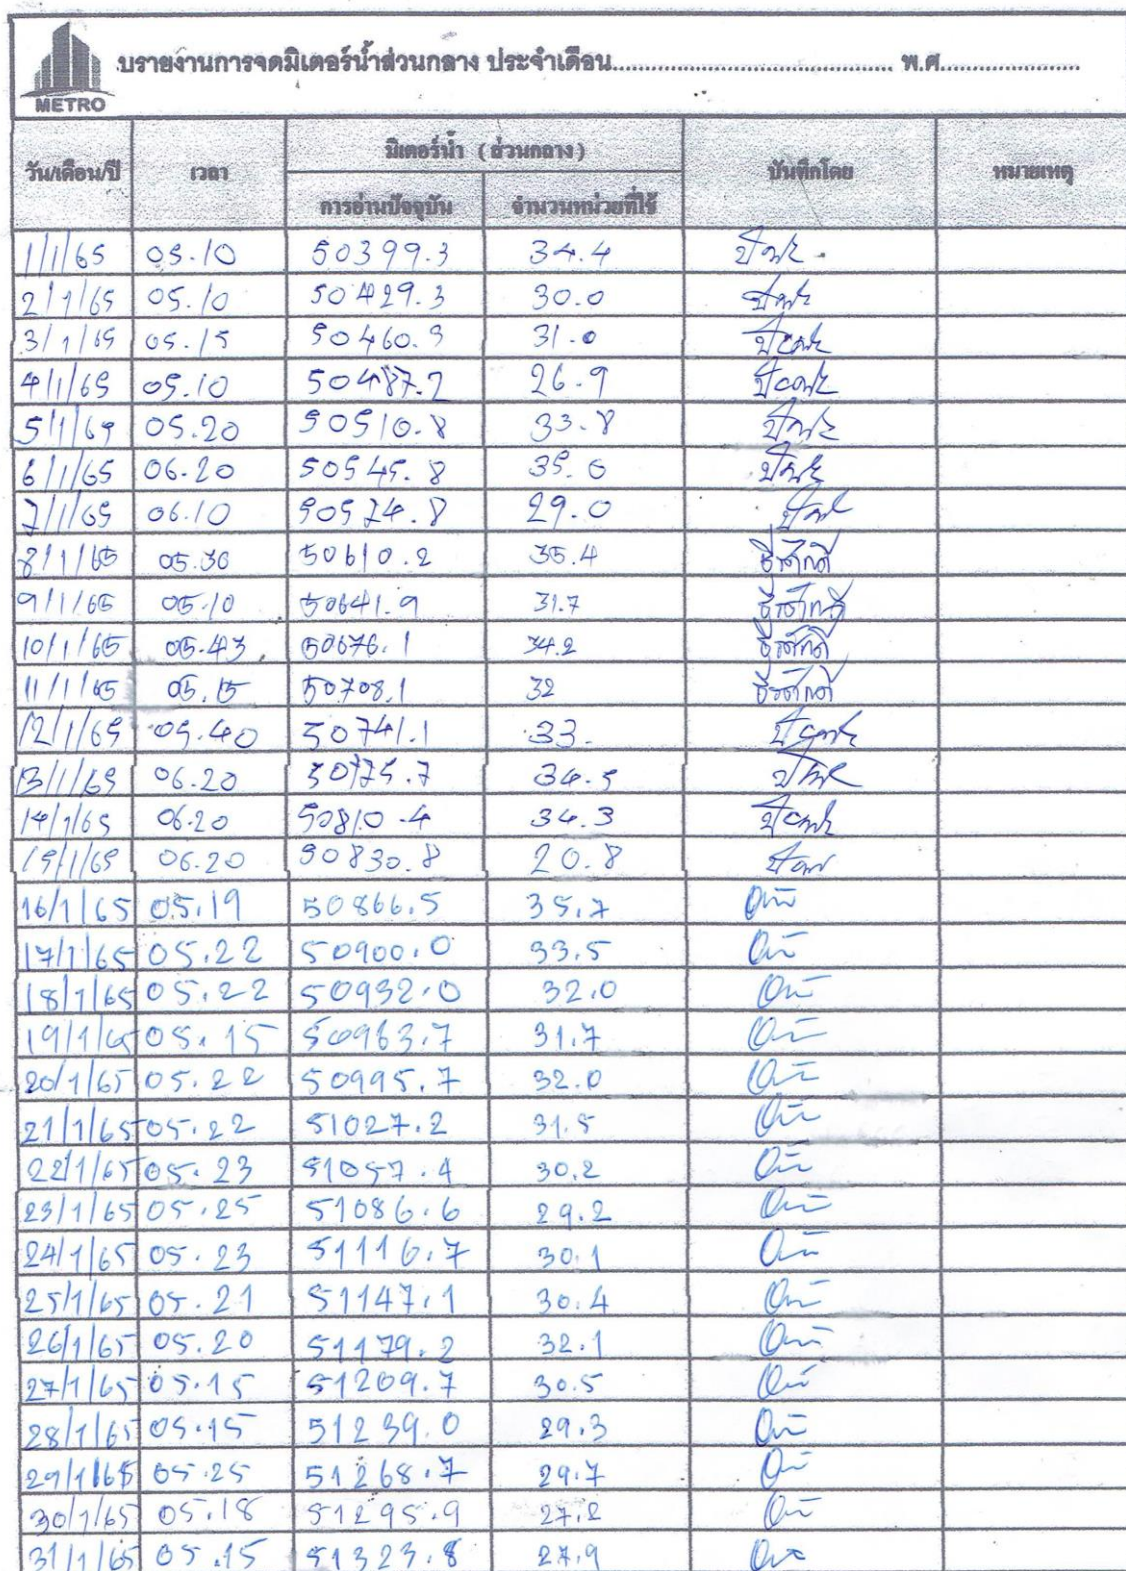 บรายงานการจดมิเตอร์น้ำส่วนกลาง ประจำเดือน.............................................. พ.ศ.......................
METRO
วัน/เดือน/ปี เวลา มิเตอร์น้ำ (ส่วนกลาง) บันทึกโดย หมายเหตุ
การอ่านปัจจุบัน จำนวนหน่วยที่ใช้
1/1/65 05.10 50399.3 34.4
2/1/65 05.10 50429.3 30.0
3/1/65 05.15 50460.3 31.0
4/1/65 05.10 50487.2 26.9
5/1/65 05.20 50510.8 33.8
6/1/65 06.20 50545.8 35.0
7/1/65 06.10 50574.8 29.0
8/1/65 05.30 50610.2 35.4 ธีรศักดิ์
9/1/65 05.10 50641.9 31.7 ธีรศักดิ์
10/1/65 05.43 50676.1 34.2 ธีรศักดิ์
11/1/65 05.15 50708.1 32 ธีรศักดิ์
12/1/65 05.40 50741.1 33.
13/1/65 06.20 50775.7 34.5
14/1/65 06.20 50810.4 34.3
15/1/65 06.20 50830.8 20.8
16/1/65 05.19 50866.5 35.7
17/1/65 05.22 50900.0 33.5
18/1/65 05.22 50932.0 32.0
19/1/65 05.15 50963.7 31.7
20/1/65 05.22 50995.7 32.0
21/1/65 05.22 51027.2 31.5
22/1/65 05.23 51057.4 30.2
23/1/65 05.25 51086.6 29.2
24/1/65 05.23 51116.7 30.1
25/1/65 05.21 51147.1 30.4
26/1/65 05.20 51179.2 32.1
27/1/65 05.15 51209.7 30.5
28/1/65 05.15 51239.0 29.3
29/1/65 05.25 51268.7 29.7
30/1/65 05.18 51295.9 27.2
31/1/65 05.15 51323.8 27.9